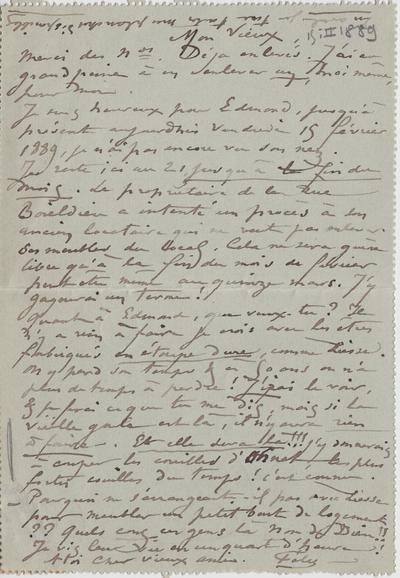 Mon Vieux,
15-II 1889
merci des Nos. Déjà enlevés. J'ai eu
grand peine à en enlever un, moi même,
pour moi.
Je suis heureux pour Edmond, jusqu'à
présent aujourdhui vendredi 15 février
1889, je n'ai pas encore vu son nez.
Je reste ici au 21 jusqu'à la fin du
mois. Le propriétaire de la Rue
Boïeldieu a intenté un procès à son
ancien locataire qui ne veut pas enlever
ses meubles du local. Cela ne sera guère
libre qu'à la fin du mois de février
peut être même au quinze mars. J'y
gagnerai un terme.
Quant à Edmond, que veux-tu? Je
n'ai rien à faire je crois avec les êtres
fabriqués en étoupe dure, comme
On y perd son temps & à 50 ans on n'a
plus de temps à perdre! J'irai le voir,
& je ferai ce que tu me dis, mais si la
vieille gale est là, il n'y aura rien
à faire. Et elle sera là!!! j'y
à couper les couilles d' les plus
fortes couilles du temps! c'est connu.
Pourquoi ne s'arrangeait-il pas avec
pour meubler un petit bout de logement
?? Quels gens là Nom de Dieu!!
Je vis leur vie en un quart d'heure!
A toi cher vieux ami.